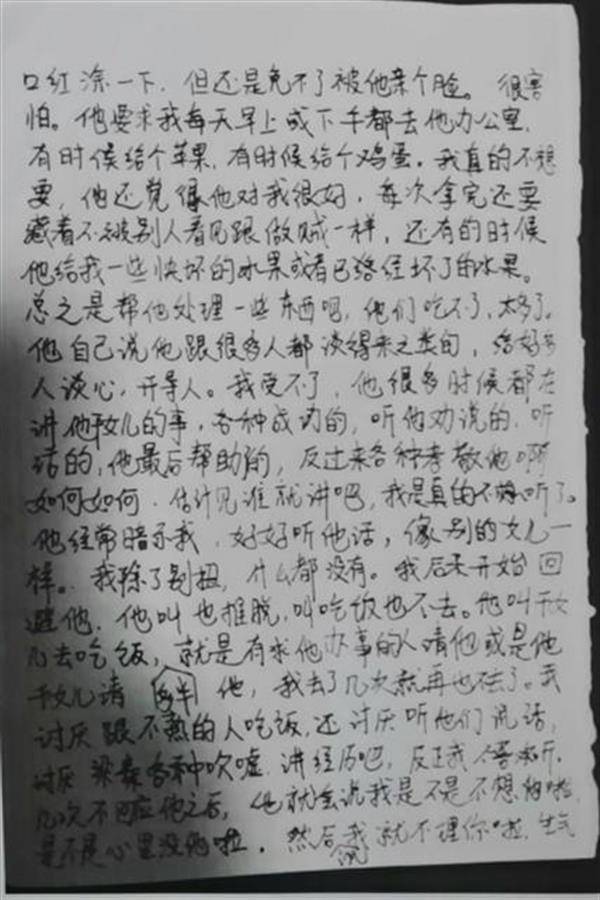 口红涂一下，但还是免不了被他亲个脸。很害
怕。他要求我每天早上或下午都去他办公室，
有时候给个苹果，有时候给个鸡蛋。我真的不想
要，他还觉得他对我很好，每次拿完还要
藏着不被别人看见跟做贼一样，还有的时候
他给我一些快坏的水果或者已经坏了的水果。
总之是帮他处理一些东西吧，他们吃不了，太多了。
他自己说他跟很多人都谈得来之类的，给好多
人谈心，开导人。我受不了，他很多时候都在
讲他干女儿的事，各种成功的，听他劝说的，听
话的，他最后帮助的，反过来各种孝敬他啊
如何如何，估计见谁就讲吧，我是真的不想听了。
他经常暗示我，好好听他话，像别的女儿一
样。我除了别扭，什么都没有。我后来开始回
避他，他叫也推脱，叫吃饭也不去。他叫干女
儿去吃饭，就是有求他办事的人请他或是他
干女儿请 他，我去了几次就再也不去了。我
讨厌跟不熟的人吃饭，还讨厌听他们说话，
讨厌 各种吹嘘，讲经历吧，反正我不喜欢听，
几次不回应他之后，他就会说我是不是不想他啦，
是不是心里没他啦，然后我就不理你啦，生气